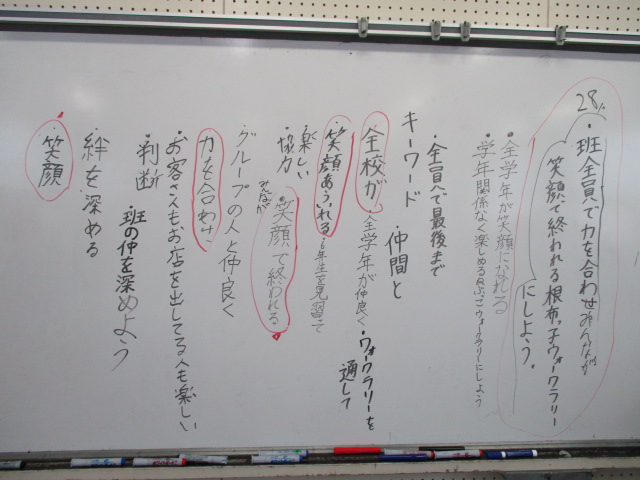 28人
・班全員で力を合わせみんなが
笑顔で終われる根布っ子ウォークラリー
にしよう。
・全学年が笑顔になれる
・学年関係なく楽しめるねぶっこウォークラリーにしよう
・全員で最後まで
キーワード ・仲間と
・全校が 全学年が仲良く ・ウォークラリーを
通して
・笑顔あふれる ・6年生を見習って
・楽しい
・協力 みんなが 笑顔で終われる
・グループの人と仲良く
・力を合わせ
・お客さんもお店を出してる人も楽しい
・判断 ・班の仲を深めよう
・絆を深める
・笑顔